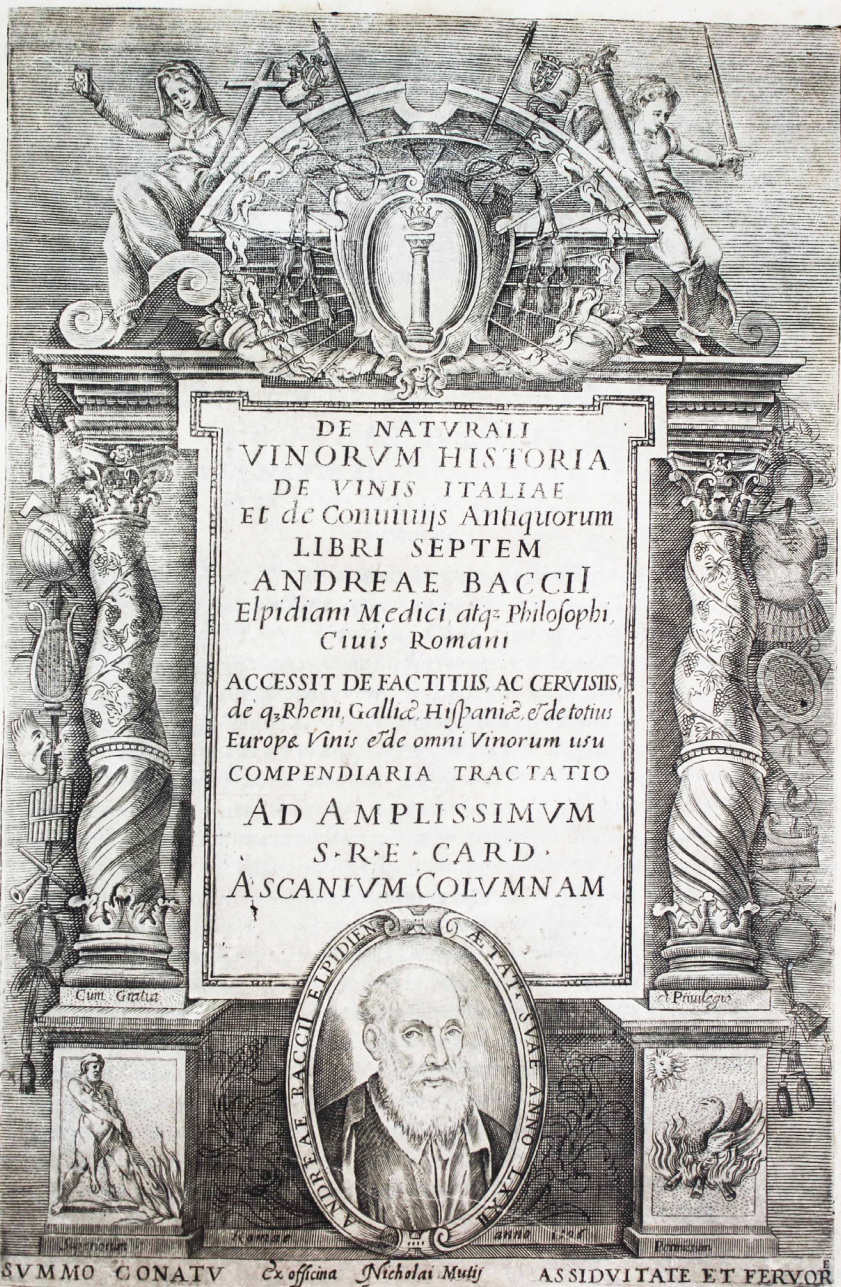 DE NATVRALI
VINORVM HISTORIA
DE VINIS ITALIAE
Et de Conuiuijs Antiquorum
LIBRI SEPTEM
ANDREAE BACCII
Elpidiani Medici atq; Philosophi,
Ciuis Romani
ACCESSIT DE FACTITIIS, AC CERVISIIS,
de q; Rheni, Galliæ, Hispaniæ, et de totius
Europæ Vinis et de omni Vinorum usu
COMPENDIARIA TRACTATIO
AD AMPLISSIMVM
S·R·E· CARD·
ASCANIVM COLVMNAM
Cum Gratia et Privilegio
ANDREAE BACCII ELPIDIEN ÆTAT. SVAE ANNO LXXII
Superiorum Romae anno 1596 Permissum
SVMMO CONATV Ex officina Nicholai Mutij ASSIDVITATE ET FERVORE